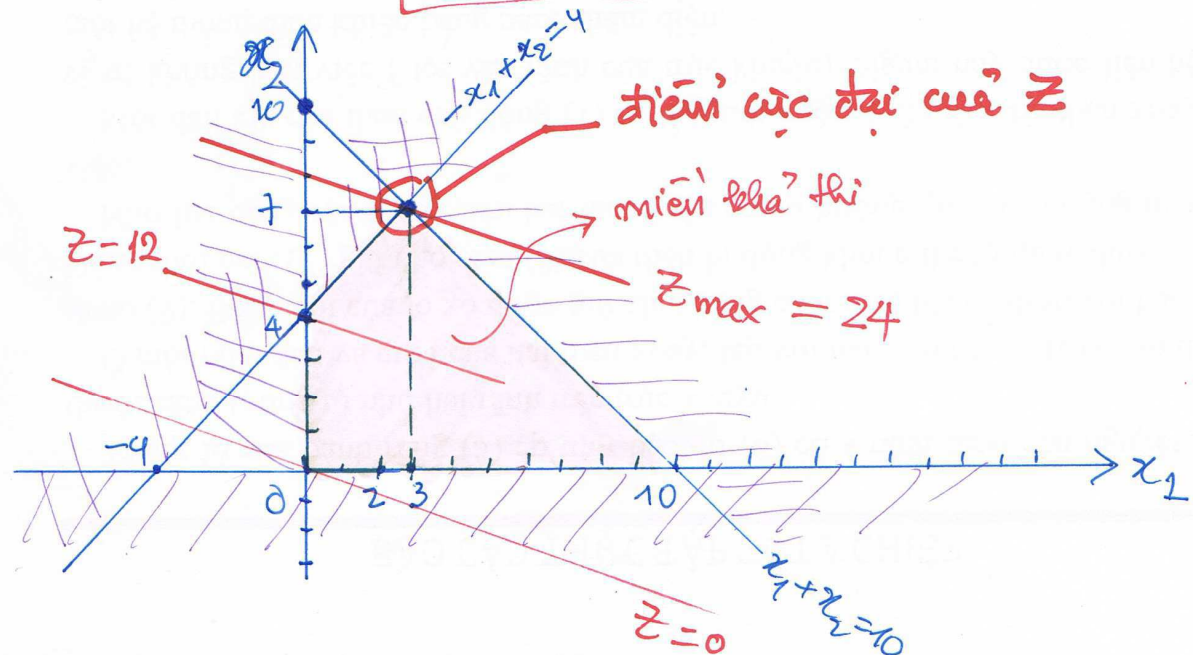 x₂
10
x₁+x₂=4
điểm cực đại của Z
7
miền khả thi
Z=12
Zmax = 24
4
-4
0
2
3
10
x₁
x₁+x₂=10
Z=0